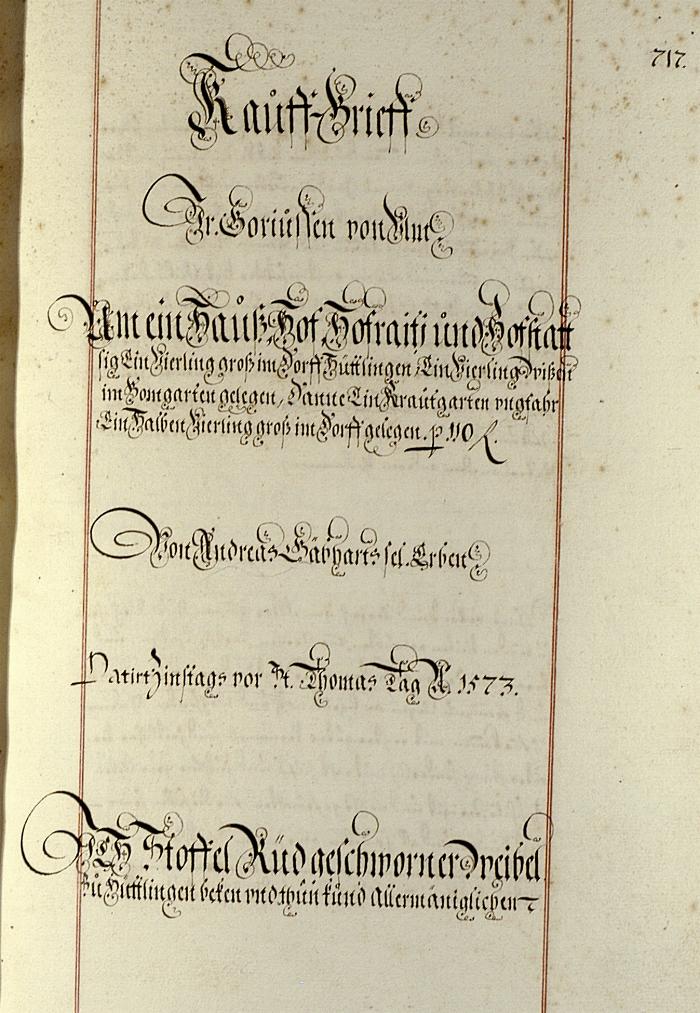 717.
Kauff-Brieff.
Jr. Goriussen von Ulm
Um ein Hauß, Hof, Hofraiti und Hofstatt
sig Ein Vierling groß im Dorff Hüttlingen, Ein Vierling Wißen
im Bomgarten gelegen, Danne Ein Krautgarten ungfahr
Ein Halben Vierling groß im Dorff gelegen. p. 110
Von Andreas Gäbharts sel. Erben
Datirt Zinstags vor St. Thomas Tag A. 1573.
ICH Stoffel Rüd geschworner Weibel
zu Hüttlingen beken vnd thun kund Allermäniglichen